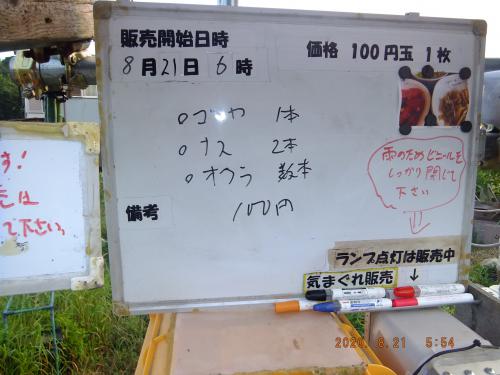 販売開始日時
8月21日 6時
価格 100円玉 1枚
○ゴーヤ 1本
○ナス 2本
○オクラ 数本
備考
100円
雨のためビニールを
しっかり閉じて
下さい
ランプ点灯は販売中
気まぐれ販売
す!
売は
て下さい。
2020 8.21 5:54